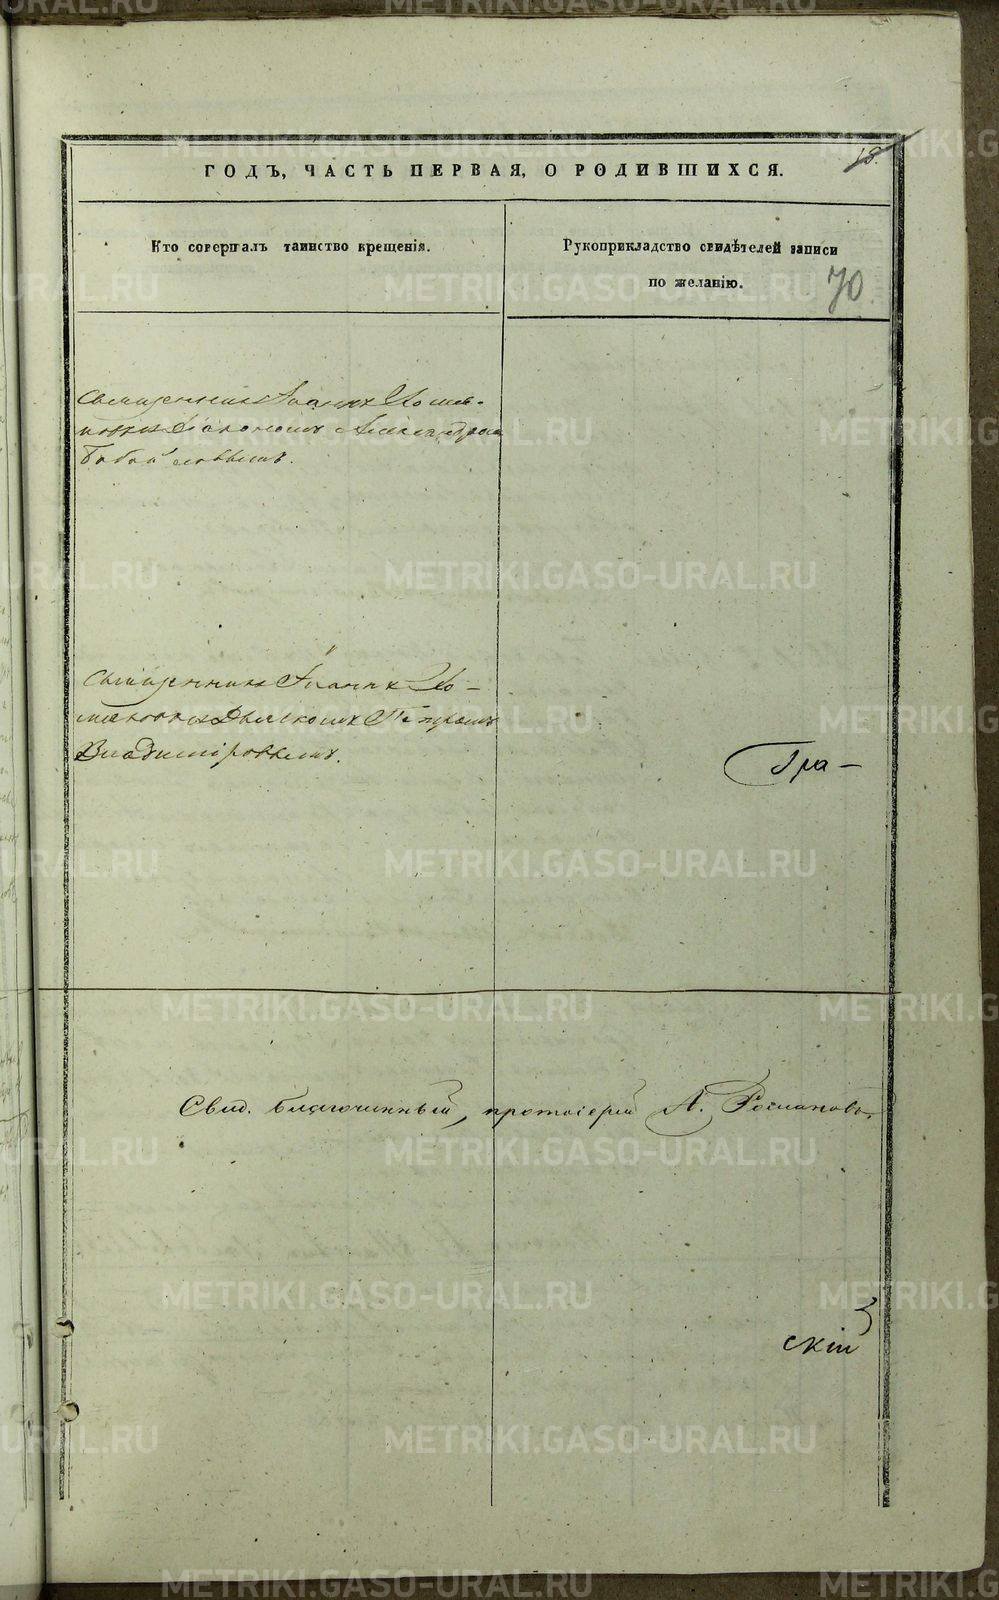 18.
ГОДЪ, ЧАСТЬ ПЕРВАЯ, О РОДИВШИХСЯ.
Кто совершалъ таинство крещенія.
Рукоприкладство свидѣтелей записи
по желанію.
70
Священникъ Іоаннъ
Діакономъ Александромъ
Священникъ Іоаннъ Ко-
Дьячкомъ Петромъ
Владиміровымъ.
Гра-
Свид. благочинный, протоіерей А. Романовъ.
скій
METRIKI.GASO-URAL.RU